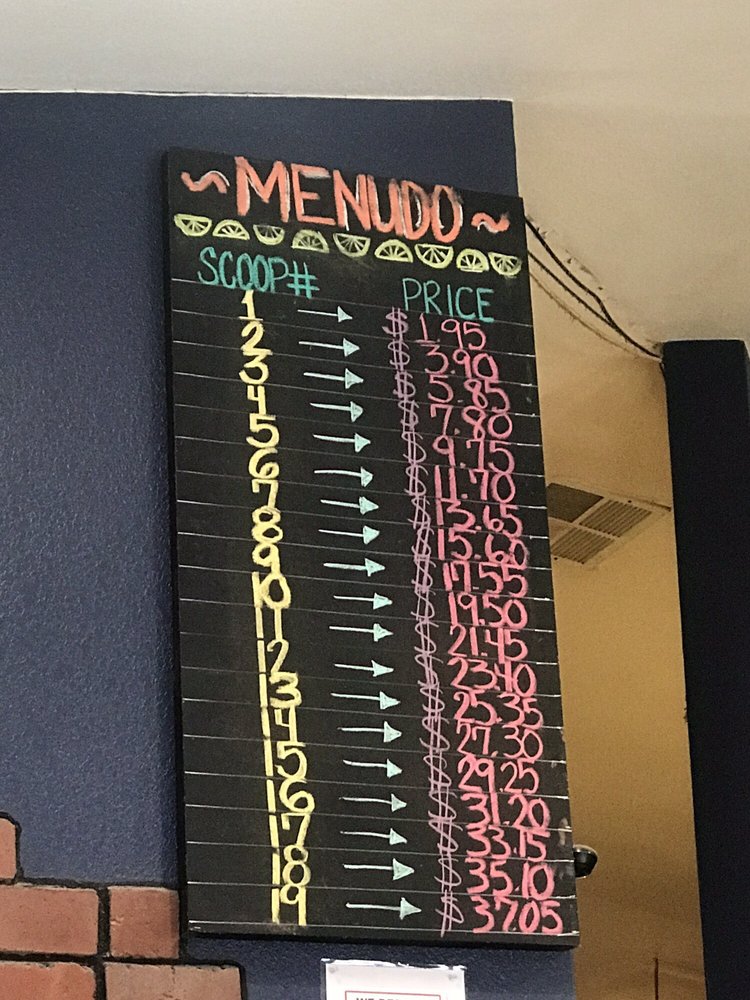 ~ MENUDO ~
SCOOP# PRICE
1 → $ 1.95
2 → $ 3.90
3 → $ 5.85
4 → $ 7.80
5 → $ 9.75
6 → $ 11.70
7 → $ 13.65
8 → $ 15.60
9 → $ 17.55
10 → $ 19.50
11 → $ 21.45
12 → $ 23.40
13 → $ 25.35
14 → $ 27.30
15 → $ 29.25
16 → $ 31.20
17 → $ 33.15
18 → $ 35.10
19 → $ 37.05